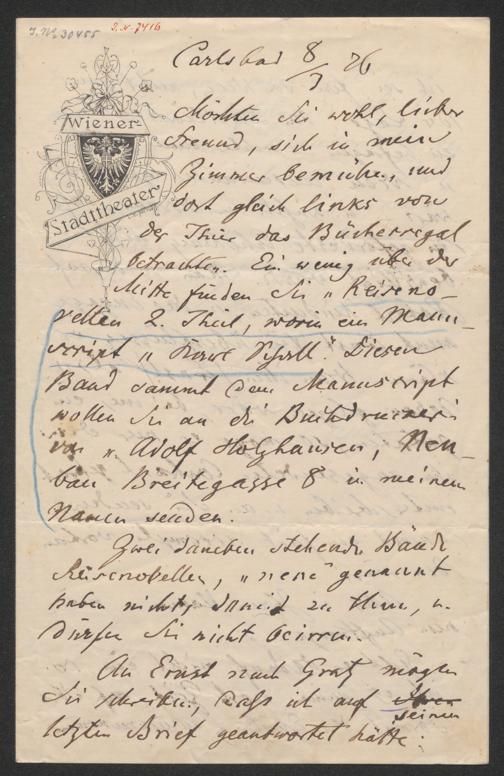 I.N. 30455
I.N. 7416
Carlsbad 8/7 76
Wiener
Stadttheater
Möchten Sie wohl, lieber
Freund, sich in mein
Zimmer bemühen, und
dort gleich links von
der Thür das Bücherregal
betrachten. Ein wenig über der
Mitte finden Sie „Reiseno-
vellen 2. Theil, worin ein Manu-
script „ Diesen
Band sammt dem Manuscript
wollen Sie an die Buchdruckerei
von „Adolf Holzhausen, Neu-
bau Breitegasse 8 in meinem
Namen senden.
Zwei daneben stehende Bände
Reisenovellen, „neue" genannt
haben nichts damit zu thun, u.
dürfen Sie nicht beirren.
An Ernst nach Graz mögen
Sie schreiben, daß ich auf
seinen
letzten Brief geantwortet hätte.